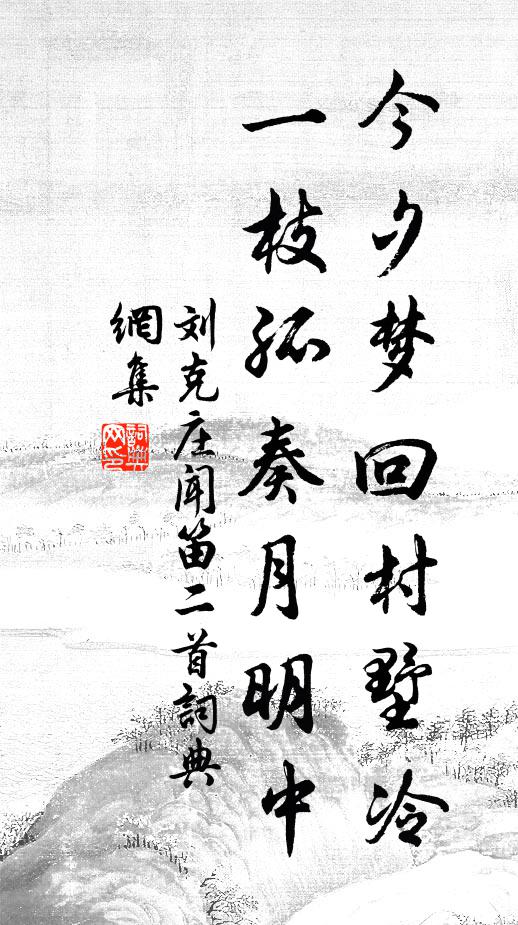 今夕梦回村墅冷
一枝孤奏月明中
刘克庄闻笛二首詞典
網集